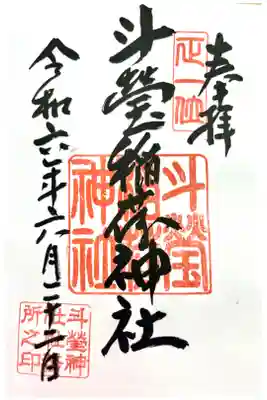 奉拝
正一位
斗瑩稲荷神社
斗瑩稲荷神社
令和六年六月二十二日
斗瑩神社社務所之印